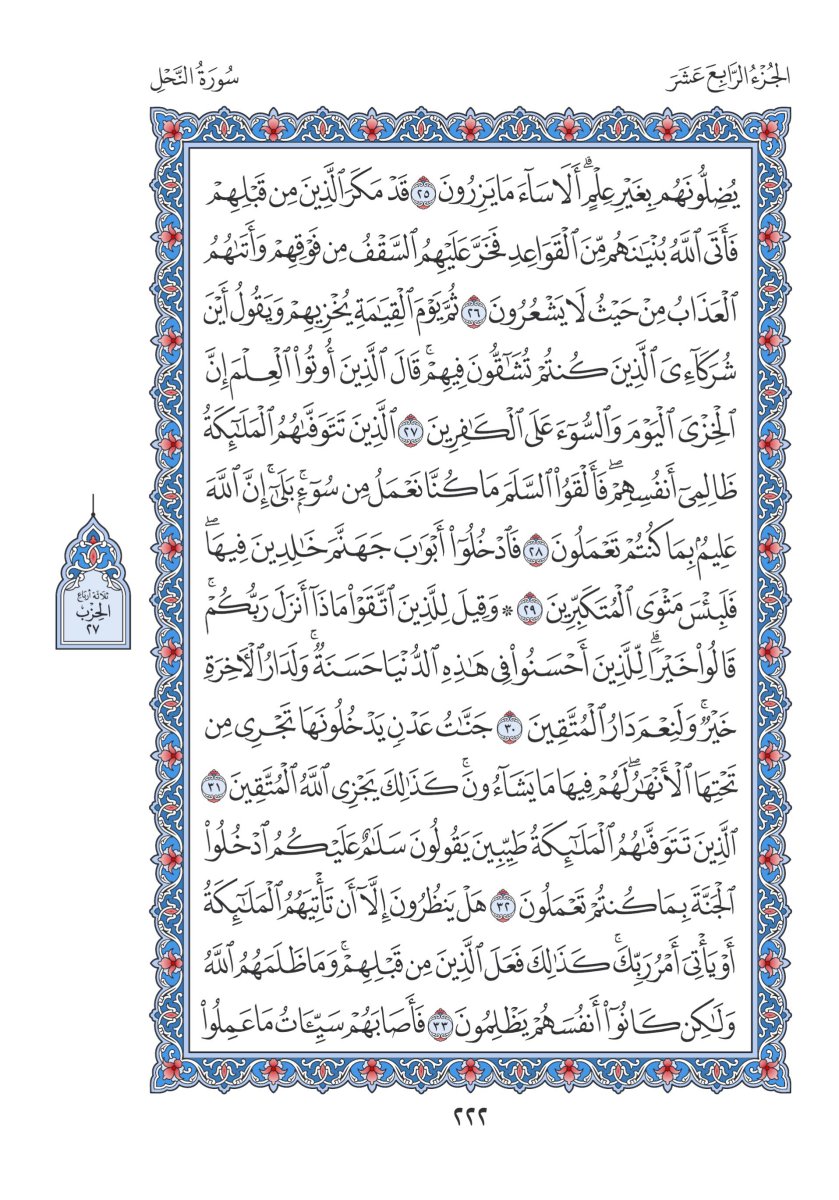 الجُزْءُ الرَّابِعَ عَشَرَ
سُورَةُ النَّحْلِ
يُضِلُّونَهُم بِغَيْرِ عِلْمٍۗ أَلَا سَآءَ مَا يَزِرُونَ ٢٥ قَدْ مَكَرَ ٱلَّذِينَ مِن قَبْلِهِمْ
فَأَتَى ٱللَّهُ بُنْيَٰنَهُم مِّنَ ٱلْقَوَاعِدِ فَخَرَّ عَلَيْهِمُ ٱلسَّقْفُ مِن فَوْقِهِمْ وَأَتَىٰهُمُ
ٱلْعَذَابُ مِنْ حَيْثُ لَا يَشْعُرُونَ ٢٦ ثُمَّ يَوْمَ ٱلْقِيَٰمَةِ يُخْزِيهِمْ وَيَقُولُ أَيْنَ
شُرَكَآءِىَ ٱلَّذِينَ كُنتُمْ تُشَٰٓقُّونَ فِيهِمْۚ قَالَ ٱلَّذِينَ أُوتُوا۟ ٱلْعِلْمَ إِنَّ
ٱلْخِزْىَ ٱلْيَوْمَ وَٱلسُّوٓءَ عَلَى ٱلْكَٰفِرِينَ ٢٧ ٱلَّذِينَ تَتَوَفَّىٰهُمُ ٱلْمَلَٰٓئِكَةُ
ظَالِمِىٓ أَنفُسِهِمْۖ فَأَلْقَوُا۟ ٱلسَّلَمَ مَا كُنَّا نَعْمَلُ مِن سُوٓءٍۭۚ بَلَىٰٓۚ إِنَّ ٱللَّهَ
عَلِيمٌۢ بِمَا كُنتُمْ تَعْمَلُونَ ٢٨ فَٱدْخُلُوٓا۟ أَبْوَٰبَ جَهَنَّمَ خَٰلِدِينَ فِيهَاۖ
فَلَبِئْسَ مَثْوَى ٱلْمُتَكَبِّرِينَ ٢٩ ۞ وَقِيلَ لِلَّذِينَ ٱتَّقَوْا۟ مَاذَآ أَنزَلَ رَبُّكُمْۚ
قَالُوا۟ خَيْرًاۗ لِّلَّذِينَ أَحْسَنُوا۟ فِى هَٰذِهِ ٱلدُّنْيَا حَسَنَةٌۚ وَلَدَارُ ٱلْءَاخِرَةِ
خَيْرٌۚ وَلَنِعْمَ دَارُ ٱلْمُتَّقِينَ ٣٠ جَنَّٰتُ عَدْنٍ يَدْخُلُونَهَا تَجْرِى مِن
تَحْتِهَا ٱلْأَنْهَٰرُۖ لَهُمْ فِيهَا مَا يَشَآءُونَۚ كَذَٰلِكَ يَجْزِى ٱللَّهُ ٱلْمُتَّقِينَ ٣١
ٱلَّذِينَ تَتَوَفَّىٰهُمُ ٱلْمَلَٰٓئِكَةُ طَيِّبِينَ يَقُولُونَ سَلَٰمٌ عَلَيْكُمُ ٱدْخُلُوا۟
ٱلْجَنَّةَ بِمَا كُنتُمْ تَعْمَلُونَ ٣٢ هَلْ يَنظُرُونَ إِلَّآ أَن تَأْتِيَهُمُ ٱلْمَلَٰٓئِكَةُ
أَوْ يَأْتِىَ أَمْرُ رَبِّكَۚ كَذَٰلِكَ فَعَلَ ٱلَّذِينَ مِن قَبْلِهِمْۚ وَمَا ظَلَمَهُمُ ٱللَّهُ
وَلَٰكِن كَانُوٓا۟ أَنفُسَهُمْ يَظْلِمُونَ ٣٣ فَأَصَابَهُمْ سَيِّـَٔاتُ مَا عَمِلُوا۟
ثلاثة أرباع
الحِزْب
٢٧
٢٢٢